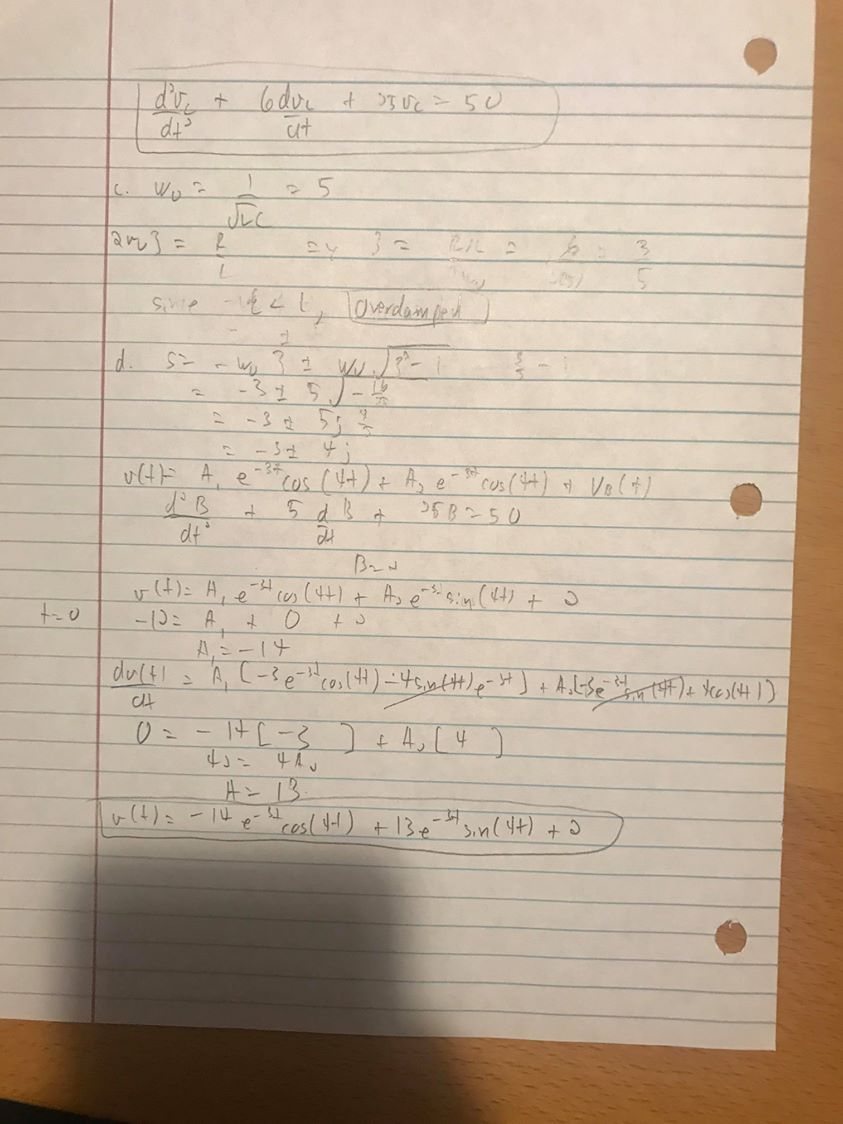 d²v_c/dt² + 6dv_c/dt + 25v_c = 50
c. w₀ = 1/√LC = 5
2w₀ζ = R/L => ζ = = 3/5
since ζ < 1, Overdamped
d. s = -w₀ζ ± w₀√ζ²-1
= -3 ± 5√-16/25
= -3 ± 5j 4/5
= -3 ± 4j
v(t) = A₁e^-3t cos(4t) + A₂e^-3t cos(4t) + V_B(t)
d²B/dt² + 5 d/dt B + 25B = 50
B = 2
v(t) = A₁e^-3t cos(4t) + A₂e^-3t sin(4t) + 2
t=0 -12 = A₁ + 0 + 2
A₁ = -14
dv(t)/dt = A₁[-3e^-3t cos(4t) - 4sin(4t)e^-3t] + A₂[-3e^-3t sin(4t) + 4cos(4t)]
0 = -14[-3 ] + A₂[4 ]
42 = 4A₂
A = 13
v(t) = -14e^-3t cos(4t) + 13e^-3t sin(4t) + 2